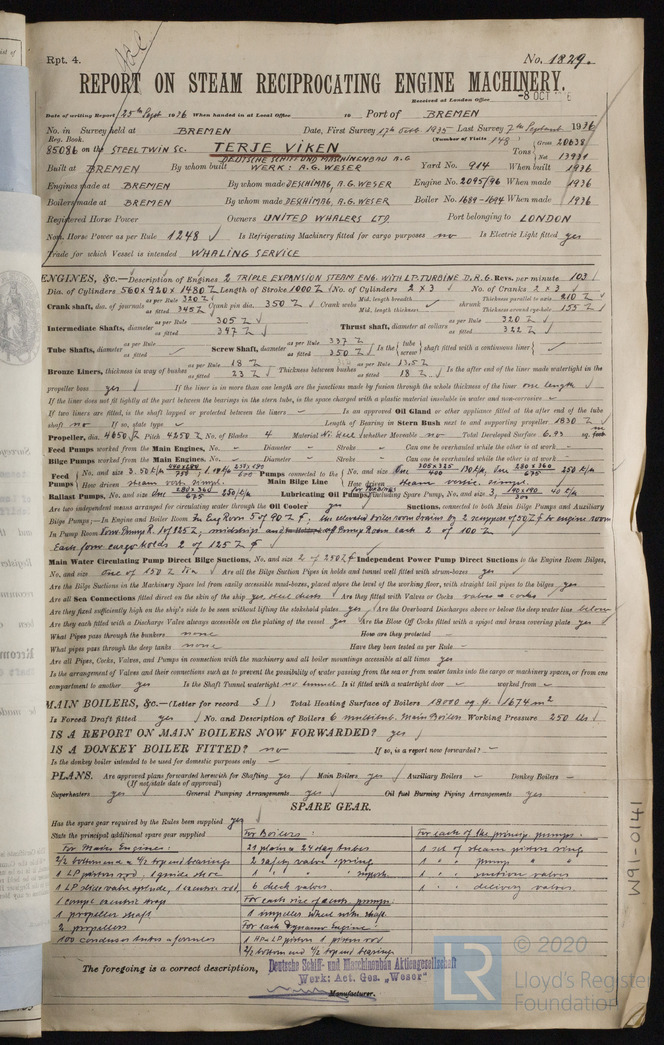 Rpt. 4.
No. 1829.
REPORT ON STEAM RECIPROCATING ENGINE MACHINERY.
Received at London Office
-8 OCT
Date of writing Report 25th Sept 1936 When handed in at Local Office to Port of BREMEN
No. in Survey held at BREMEN Date, First Survey 17th Oct. 1935 Last Survey 7th September 1936
Reg. Book. (Number of Visits 148)
85086 on the STEEL TWIN SC. TERJE VIKEN Tons Gross 20638 Net 13931
DEUTSCHE SCHIFF UND MASCHINENBAU A.G
Built at BREMEN By whom built WERK: A.G. WESER Yard No. 914 When built 1936
Engines made at BREMEN By whom made DESCHIMAG, A.G. WESER Engine No. 2095/96 When made 1936
Boilers made at BREMEN By whom made DESCHIMAG, A.G. WESER Boiler No. 1689-1694 When made 1936
Registered Horse Power Owners UNITED WHALERS LTD. Port belonging to LONDON
Nom. Horse Power as per Rule 1248 Is Refrigerating Machinery fitted for cargo purposes no Is Electric Light fitted yes
Trade for which Vessel is intended WHALING SERVICE
ENGINES, &c.—Description of Engines 2 TRIPLE EXPANSION STEAM ENG. WITH LP. TURBINE D.R.G. Revs. per minute 103
Dia. of Cylinders 560 x 920 x 1480 Length of Stroke 1000 No. of Cylinders 2 x 3 No. of Cranks 2 x 3
Crank shaft, dia. of journals as per Rule 320 as fitted 345 Crank pin dia. 350 Crank webs Mid. length breadth Mid. length thickness shrunk Thickness parallel to axis 210 Thickness around eye-hole 155
Intermediate Shafts, diameter as per Rule 305 as fitted 347 Thrust shaft, diameter at collars as per Rule 320 as fitted 322
Tube Shafts, diameter as per Rule as fitted Screw Shaft, diameter as per Rule 337 as fitted 350 Is the tube screw shaft fitted with a continuous liner
Bronze Liners, thickness in way of bushes as per Rule 18 as fitted 23 Thickness between bushes as per Rule 13.5 as fitted 18 Is the after end of the liner made watertight in the
propeller boss yes If the liner is in more than one length are the junctions made by fusion through the whole thickness of the liner one length
If the liner does not fit tightly at the part between the bearings in the stern tube, is the space charged with a plastic material insoluble in water and non-corrosive
If two liners are fitted, is the shaft lapped or protected between the liners Is an approved Oil Gland or other appliance fitted at the after end of the tube
shaft no If so, state type Length of Bearing in Stern Bush next to and supporting propeller 1830
Propeller, dia. 4650 Pitch 4250 No. of Blades 4 Material whether Moveable no Total Developed Surface 6.93 sq.
Feed Pumps worked from the Main Engines, No. Diameter Stroke Can one be overhauled while the other is at work
Bilge Pumps worked from the Main Engines, No. Diameter Stroke Can one be overhauled while the other is at work
Feed Pumps No. and size How driven Pumps connected to the Main Bilge Line No. and size How driven
Ballast Pumps, No. and size Lubricating Oil Pumps, including Spare Pump, No. and size 3,
Are two independent means arranged for circulating water through the Oil Cooler yes Suctions, connected to both Main Bilge Pumps and Auxiliary
Bilge Pumps;—In Engine and Boiler Room
In Pump Room
Each fore cargo holds 2 of 125
Main Water Circulating Pump Direct Bilge Suctions, No. and size 2 of 250 Independent Power Pump Direct Suctions to the Engine Room Bilges,
No. and size one of 150 Are all the Bilge Suction Pipes in holds and tunnel well fitted with strum-boxes yes
Are the Bilge Suctions in the Machinery Space led from easily accessible mud-boxes, placed above the level of the working floor, with straight tail pipes to the bilges yes
Are all Sea Connections fitted direct on the skin of the ship yes, Are they fitted with Valves or Cocks valves & cocks
Are they fixed sufficiently high on the ship's side to be seen without lifting the stokehold plates yes Are the Overboard Discharges above or below the deep water line below
Are they each fitted with a Discharge Valve always accessible on the plating of the vessel yes Are the Blow Off Cocks fitted with a spigot and brass covering plate yes
What Pipes pass through the bunkers none How are they protected
What pipes pass through the deep tanks none Have they been tested as per Rule
Are all Pipes, Cocks, Valves, and Pumps in connection with the machinery and all boiler mountings accessible at all times yes
Is the arrangement of Valves and their connections such as to prevent the possibility of water passing from the sea or from water tanks into the cargo or machinery spaces, or from one
compartment to another yes Is the Shaft Tunnel watertight no tunnel Is it fitted with a watertight door worked from
MAIN BOILERS, &c.—(Letter for record S) Total Heating Surface of Boilers 18000 sq. ft. 1674 m²
Is Forced Draft fitted yes No. and Description of Boilers 6 multitub. Main Boilers Working Pressure 250 lbs
IS A REPORT ON MAIN BOILERS NOW FORWARDED? yes
IS A DONKEY BOILER FITTED? no If so, is a report now forwarded?
Is the donkey boiler intended to be used for domestic purposes only
PLANS. Are approved plans forwarded herewith for Shafting yes Main Boilers yes Auxiliary Boilers Donkey Boilers
(If not state date of approval)
Superheaters yes General Pumping Arrangements yes Oil fuel Burning Piping Arrangements yes
SPARE GEAR.
Has the spare gear required by the Rules been supplied yes
State the principal additional spare gear supplied
For Main Engines:
2/2 bottom end & 4/2 top end bearings
1 LP piston rod, 1 guide shoe
1 LP slide valve spindle, 1 excentric rod
1 compl excentric strap
1 propeller shaft
2 propellers
100 condenser tubes & ferrules
For Boilers:
21 plain & 24 stay tubes
2 safety valve spring
6 check valves
For each size of centr. pumps:
1 impeller wheel with shaft
For each Dynamo Engine:
1 HP & LP piston & piston rod
2/2 bottom end 1/2 top end bearings
For each of the princip. pumps.
1 set of steam piston ring
1 " " pump " "
1 " " suction valves
1 " " delivery valves.
The foregoing is a correct description,
Deutsche Schiff- und Maschinenbau Aktiengesellschaft
Werk: Act. Ges. „Weser"
Manufacturer.
W91-0141
LR
© 2020
Lloyd's Register
Foundation